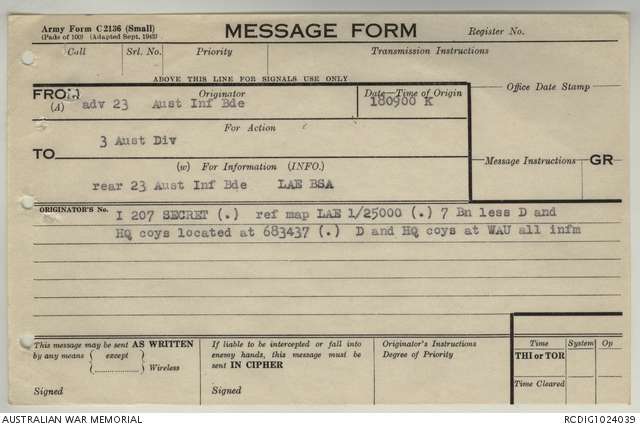 Army Form C2136 (Small)
(Pads of 100) (Adapted Sept. 1943)
MESSAGE FORM
Register No.
Call
Srl. No.
Priority
Transmission Instructions
ABOVE THIS LINE FOR SIGNALS USE ONLY
FROM
(A)
Originator
adv 23 Aust Inf Bde
Date—Time of Origin
180900 K
Office Date Stamp
For Action
3 Aust Div
TO
(w) For Information (INFO.)
rear 23 Aust Inf Bde LAE BSA
Message Instructions
GR
ORIGINATOR'S No.
I 207 SECRET (.) ref map LAE 1/25000 (.) 7 Bn less D and
HQ coys located at 683437 (.) D and HQ coys at WAU all infm
This message may be sent AS WRITTEN
by any means { except }
{ .............. } Wireless
Signed
If liable to be intercepted or fall into
enemy hands, this message must be
sent IN CIPHER
Signed
Originator's Instructions
Degree of Priority
Time
System
Op
THI or TOR
Time Cleared
AUSTRALIAN WAR MEMORIAL
RCDIG1024039